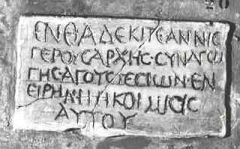 ΕΝΘΑΔΕΚΙΤΕΑΝΝΙС
ΓΕΡΟΥСΑΡΧΗССΥΝΑΓΩ
ΓΗСΑΓΟΥСΤΕСΙΩΝΕΝ
ΕΙΡΗΝΗΗΚΟΙΜΗСΙС
ΑΥΤΟΥ